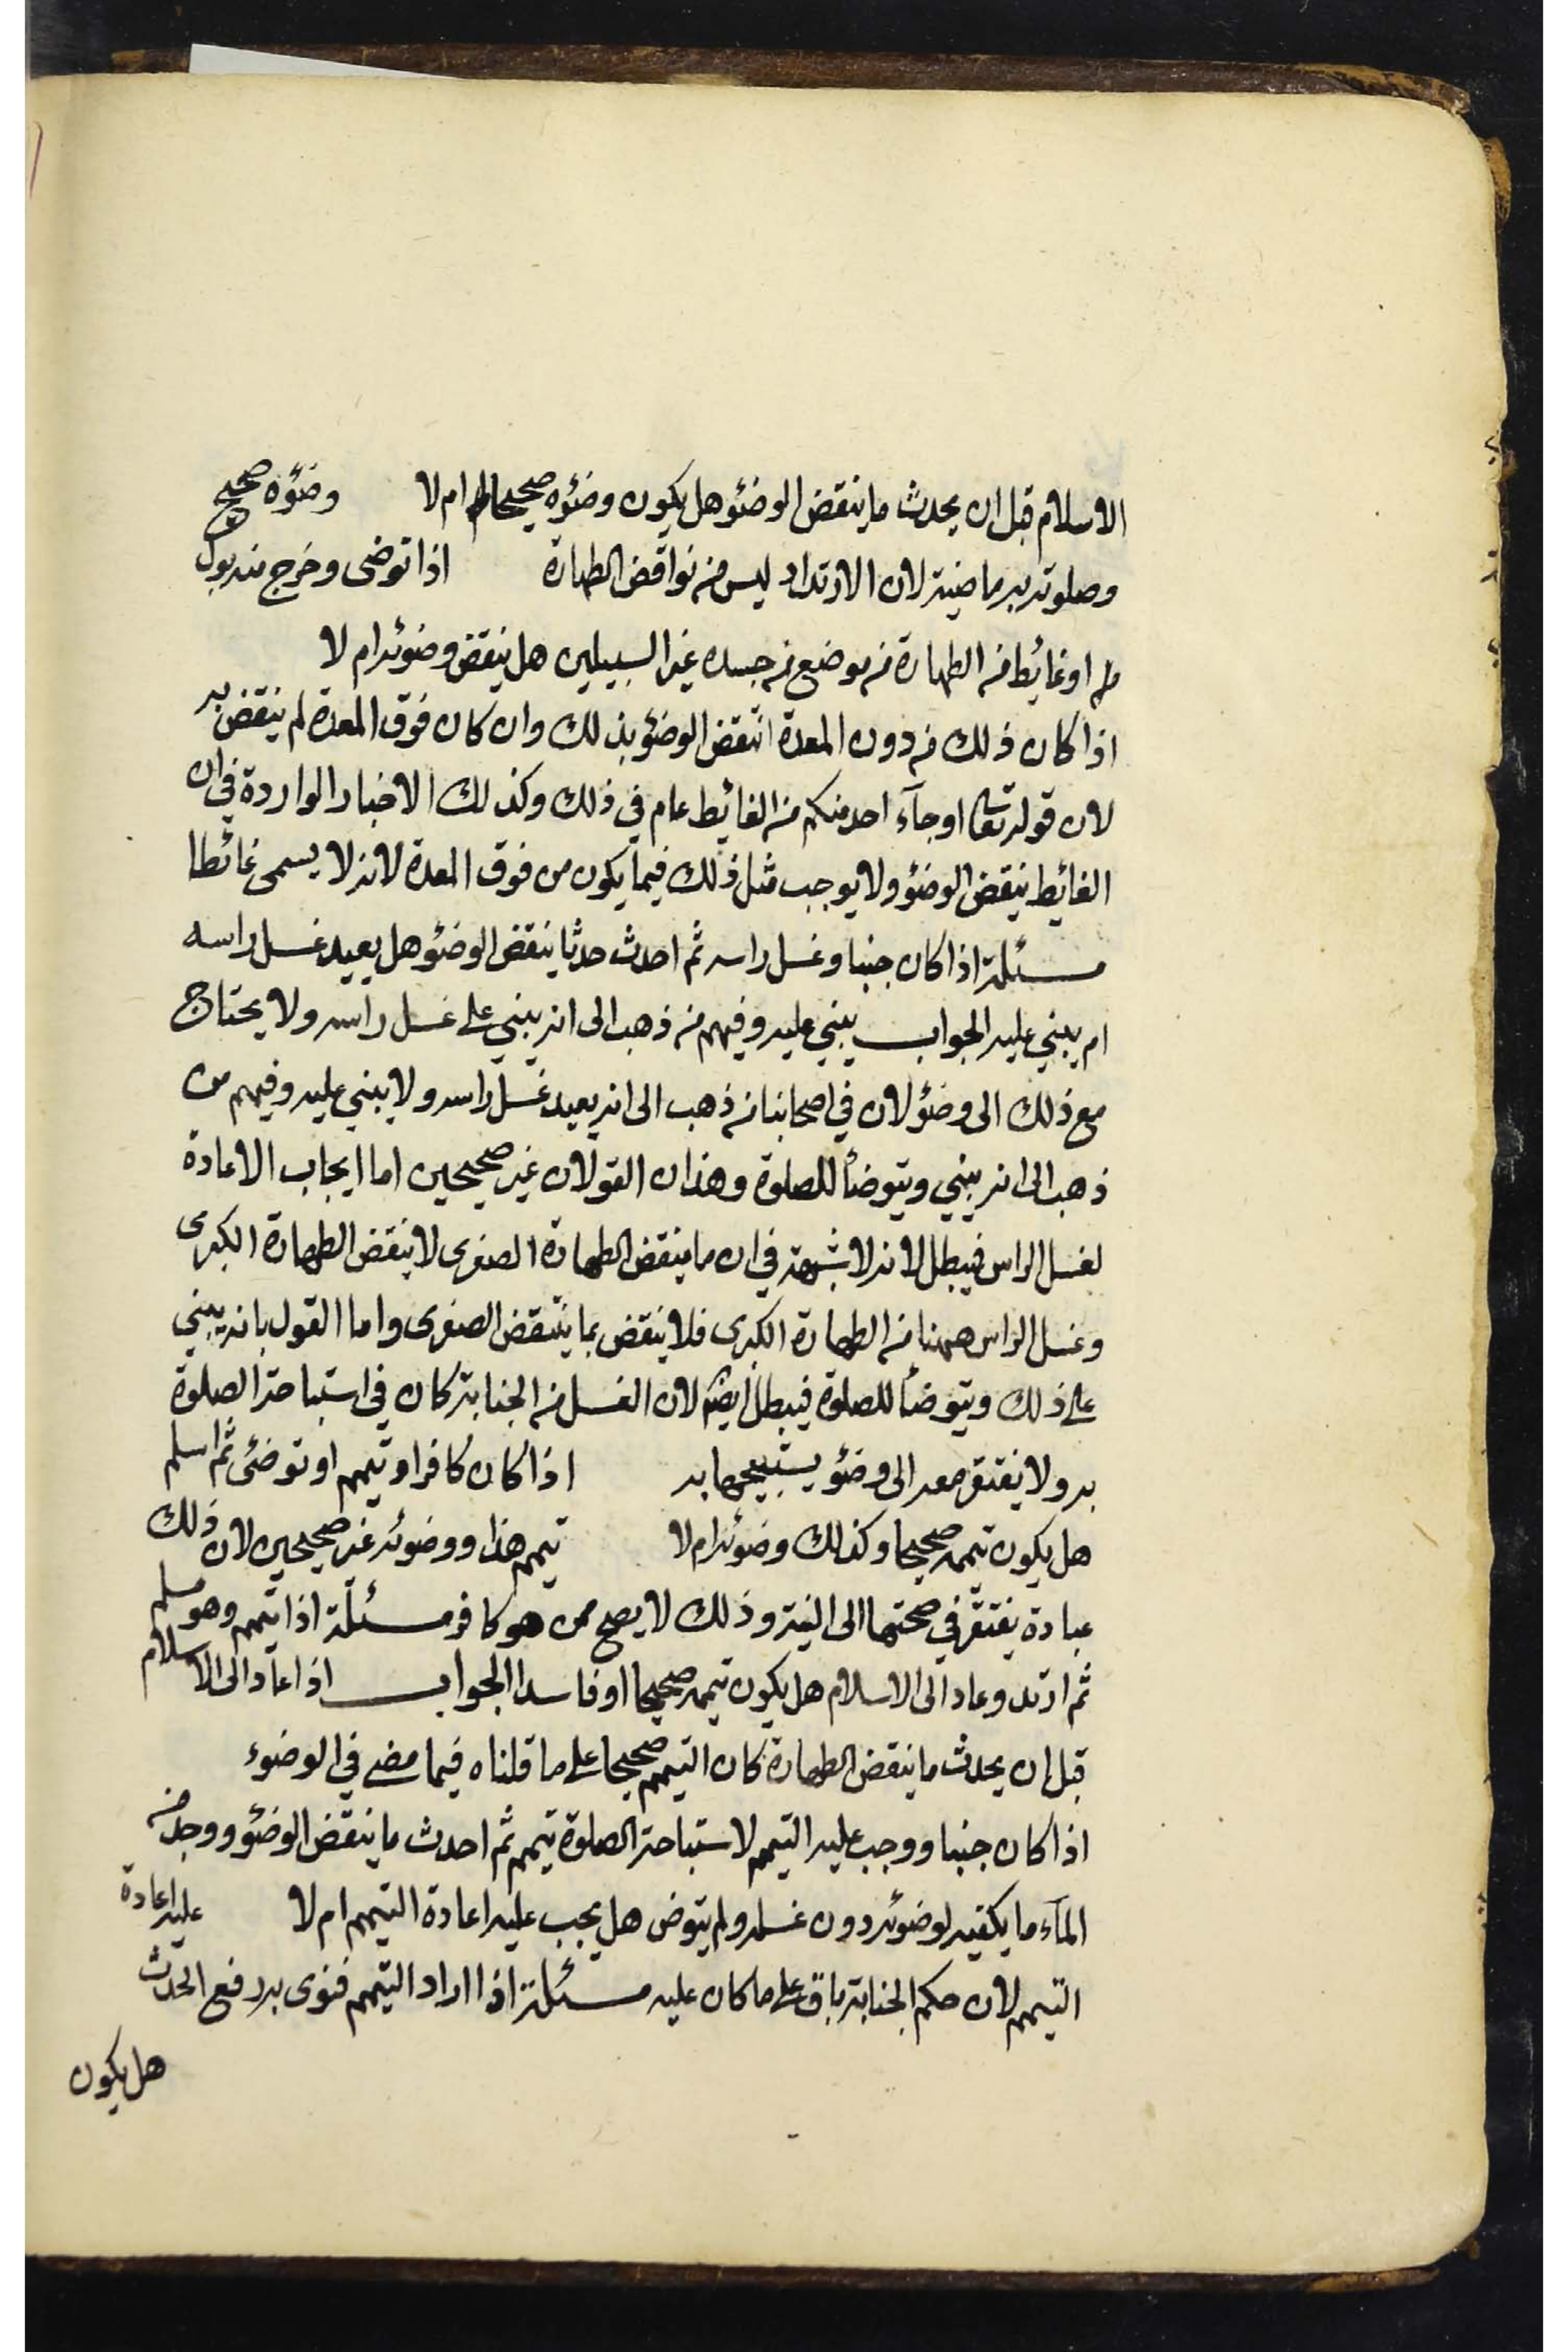 الاسلام قبل ان يحدث ما ينقض الوضئو هل يكون وضئوه صحيحا ام لا وضئوه صحيح
وصلوته به ماضية لان الارتداد ليس من نواقض الطهارة اذا توضى وخرج منه بول
او غائط من الطهارة من موضع من جسده غير السبيلين هل ينقض وضوئه ام لا
اذا كان ذلك من دون المعدة انتقض الوضئو بذلك وان كان فوق المعدة لم ينتقض به
لان قوله تعالى او جآء احد منكم من الغائيط عام في ذلك وكذلك الاخبار الواردة في ان
الغائيط ينقض الوضئو ولا يوجب مثل ذلك فيما يكون من فوق المعدة لانه لا يسمى غائطا
مسئلة اذا كان جنبا وغسل راسه ثم احدث حدثا ينقض الوضئو هل يعيد غسل راسه
ام يبني عليه الجواب يبني عليه وفيهم من ذهب الى انه يبني على غسل راسه ولا يحتاج
مع ذلك الى وضئو لان في اصحابنا من ذهب الى انه يعيد غسل راسه ولا يبني عليه وفيهم من
ذهب الى انه يبني ويتوضأ للصلوة وهذان القولان غير صحيحين اما ايجاب الاعادة
لغسل الراس فيبطل لانه لا شبهة في ان ما ينقض الطهارة الصغرى لا ينقض الطهارة الكبرى
وغسل الراس ههنا من الطهارة الكبرى فلا ينقض بما ينتقض الصغرى واما القول بانه يبني
على ذلك ويتوضأ للصلوة فيبطل ايضا لان الغسل من الجنابة كان في استباحة الصلوة
به ولا يفتقر معه الى وضئو يستبيحها به اذا كان كافرا وتيمم او توضئ ثم اسلم
هل يكون تيممه صحيحا وكذلك وضوئه ام لا تيمم هذا ووضوئه غير صحيحين لان ذلك
عبادة يفتقر في صحتها الى النية وذلك لا يصح ممن هو كافر مسئلة اذا تيمم وهو مسلم
ثم ارتد وعاد الى الاسلام هل يكون تيممه صحيحا او فاسدا الجواب اذا عاد الى الاسلام
قبل ان يحدث ما ينقض الطهارة كان التيمم صحيحا على ما قلناه فيما مضى في الوضوء
اذا كان جنبا ووجب عليه التيمم لاستباحة الصلوة تيمم ثم احدث ما ينقض الوضئو ووجد من
المآء ما يكفيه لوضوئه دون غسله ولم يتوض هل يجب عليه اعادة التيمم ام لا عليه اعادة
التيمم لان حكم الجنابة باق على ما كان عليه مسئلة اذا اراد التيمم فنوى به رفع الحدث
هل يكون